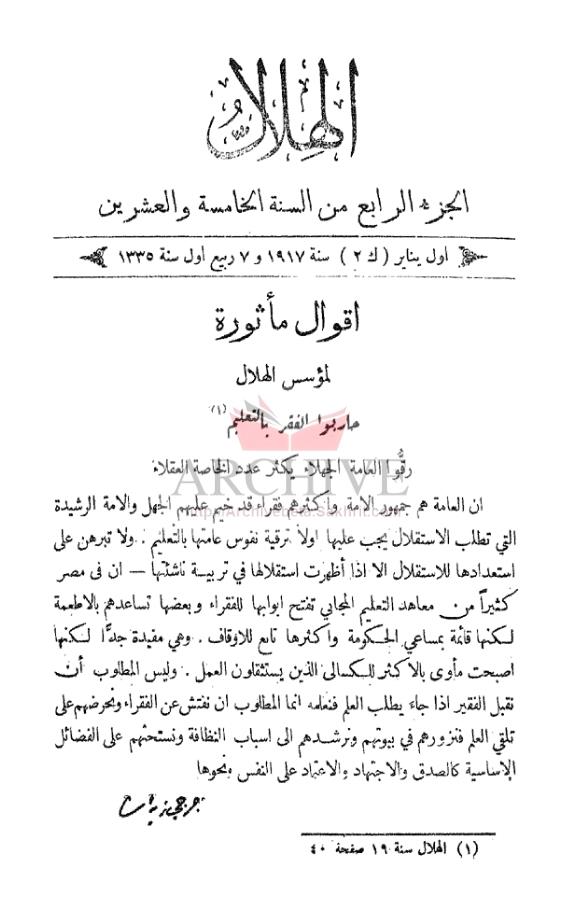 الهلال
الجزء الرابع من السنة الخامسة والعشرين
اول يناير ( ك ٢ ) سنة ١٩١٧ و ٧ ربيع اول سنة ١٣٣٥
اقوال مأثورة
لمؤسس الهلال
حاربوا الفقر بالتعليم (١)
رقُّوا العامة الجهلاء يكثر عدد الخاصة العقلاء
ARCHIVE
ان العامة هم جمهور الامة واكثرهم فقراء قد خيم عليهم الجهل والامة الرشيدة
التي تطلب الاستقلال يجب عليها اولاً ترقية نفوس عامتها بالتعليم . ولا تبرهن على
استعدادها للاستقلال الا اذا أظهرت استقلالها في تربية ناشئتها — ان فى مصر
كثيراً من معاهد التعليم المجاني تفتح ابوابها للفقراء وبعضها تساعدهم بالاطعمة
لكنها قائمة بمساعي الحكومة واكثرها تابع للاوقاف . وهي مفيدة جدًّا لكنها
اصبحت مأوى بالاكثر للكسالى الذين يستثقلون العمل . وليس المطلوب أن
نقبل الفقير اذا جاء يطلب العلم فنعلمه انما المطلوب ان نفتش عن الفقراء ونحرضهم على
تلقي العلم فنزورهم في بيوتهم ونرشدهم الى اسباب النظافة ونستحثهم على الفضائل
الاساسية كالصدق والاجتهاد والاعتماد على النفس ونحوها
جرجي زيدان
(١) الهلال سنة ١٩ صفحة ٤٠